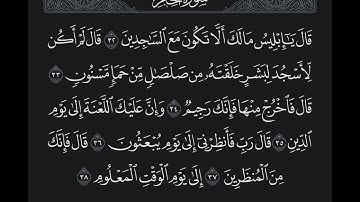 قَالَ يَٰٓإِبْلِيسُ مَا لَكَ أَلَّا تَكُونَ مَعَ ٱلسَّٰجِدِينَ ٣٢ قَالَ لَمْ أَكُن
لِّأَسْجُدَ لِبَشَرٍ خَلَقْتَهُۥ مِن صَلْصَٰلٍ مِّنْ حَمَإٍ مَّسْنُونٍ ٣٣
قَالَ فَٱخْرُجْ مِنْهَا فَإِنَّكَ رَجِيمٌ ٣٤ وَإِنَّ عَلَيْكَ ٱللَّعْنَةَ إِلَىٰ يَوْمِ
ٱلدِّينِ ٣٥ قَالَ رَبِّ فَأَنظِرْنِىٓ إِلَىٰ يَوْمِ يُبْعَثُونَ ٣٦ قَالَ فَإِنَّكَ
مِنَ ٱلْمُنظَرِينَ ٣٧ إِلَىٰ يَوْمِ ٱلْوَقْتِ ٱلْمَعْلُومِ ٣٨